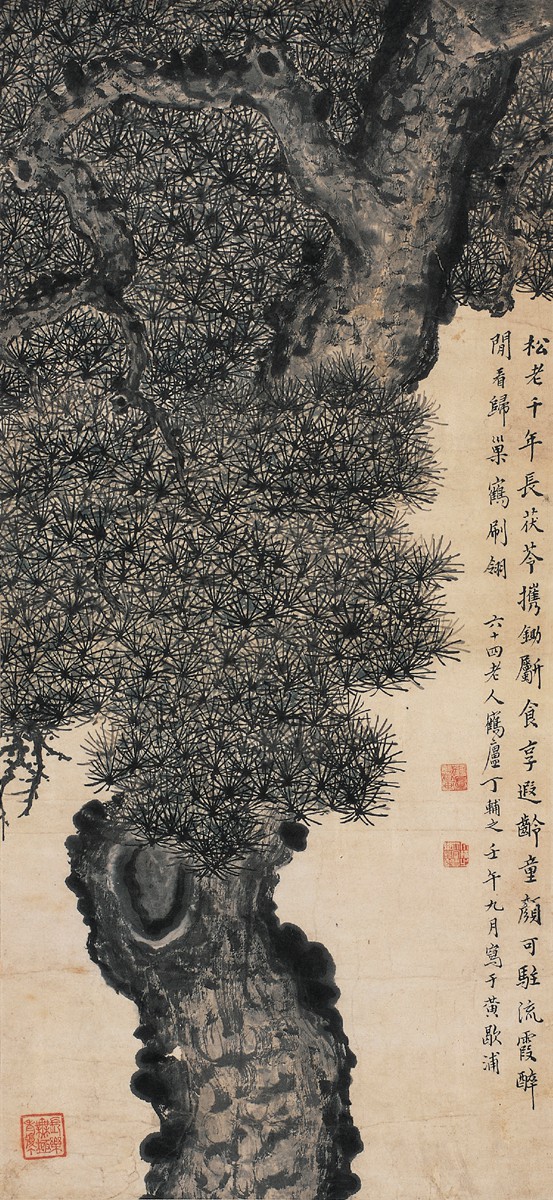 松老千年長茯苓攜鋤斸食享遐齡童顏可駐流霞醉
閒看歸巢鶴刷翎 六十四老人鶴廬丁輔之壬午九月寫于黃歇浦